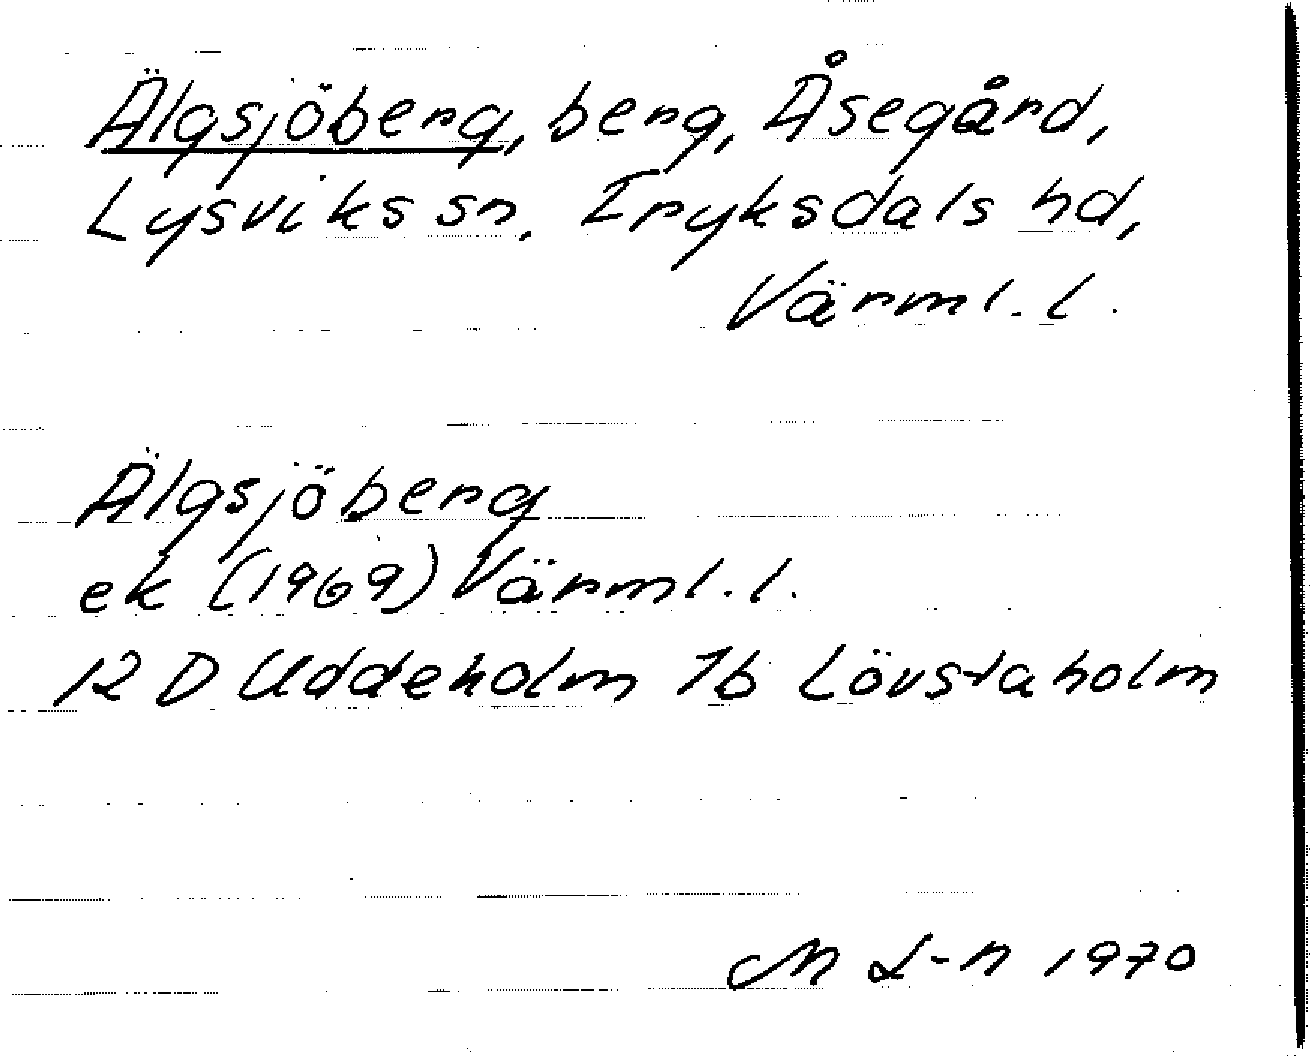 Älgsjöberg, berg, Åsegård,
Lysviks sn, Fryksdals hd,
Värml. l.
Älgsjöberg
ek (1969) Värml. l.
12 D Uddeholm 7b Lövstaholm
M L-n 1970